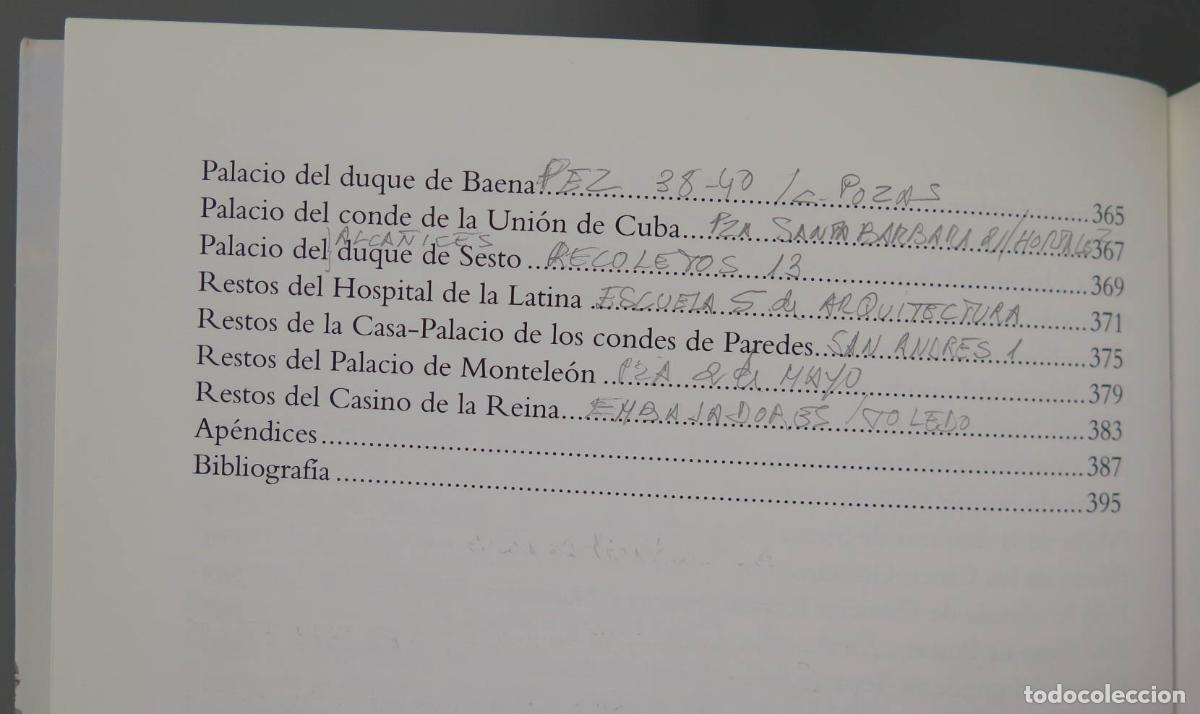 Palacio del duque de Baena PEZ 38-40 /c-POZAS 365
Palacio del conde de la Unión de Cuba PZA SANTA BARBARA /HORTALEZ 367
ALCAÑICES
Palacio del duque de Sesto RECOLETOS 13 369
Restos del Hospital de la Latina ESCUELA S de ARQUITECTURA 371
Restos de la Casa-Palacio de los condes de Paredes SAN ANDRES 1 375
Restos del Palacio de Monteleón PZA 2 de MAYO 379
Restos del Casino de la Reina EMBAJADORES /TOLEDO 383
Apéndices 387
Bibliografía 395
todocoleccion